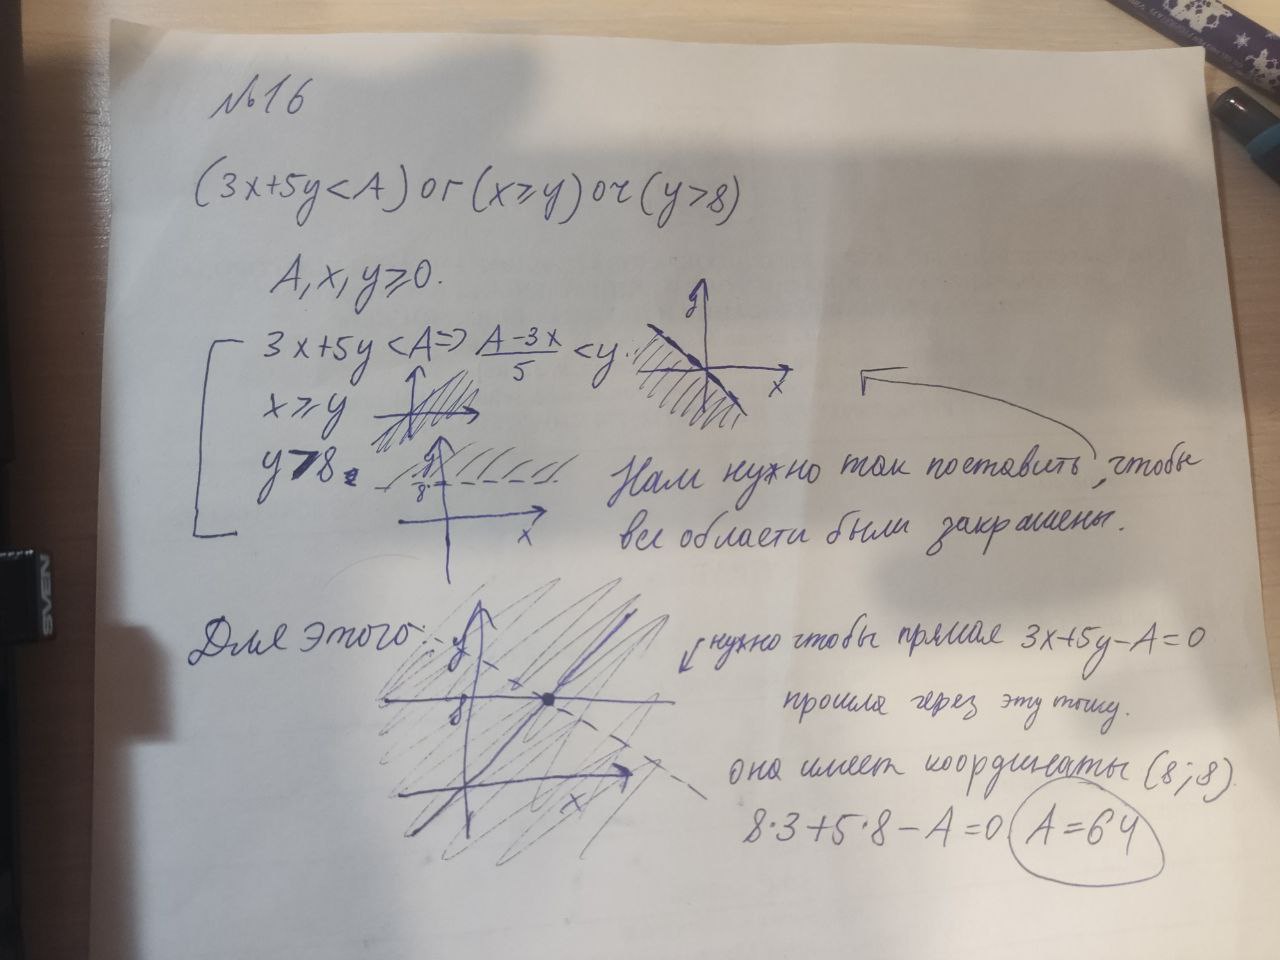 №16
(3x+5y<A) or (x⩾y) or (y>8)
A, x, y⩾0.
3x+5y<A=> \frac{A-3x}{5}<y.
x⩾y
y>8.
y
x
y
8
x
Нам нужно так поставить, чтобы
все области были закрашены.
Для этого
y
8
x
нужно чтобы прямая 3x+5y-A=0
прошла через эту точку.
она имеет координаты (8;8).
8·3+5·8-A=0 A=64
SVEN